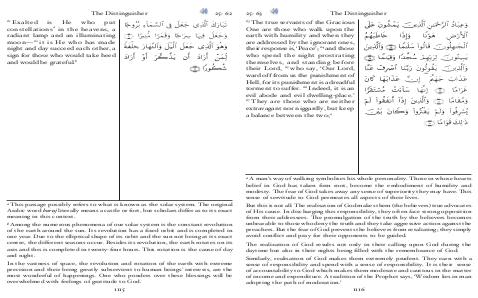 The Distinguisher
25: 62
⁶¹ Exalted is He who put
constellationsᵃ in the heavens, a
radiant lamp and an illuminating
moon—⁶² it is He who has made
night and day succeed each other, a
sign for those who would take heed
and would be grateful.ᵇ
تَبَارَكَ الَّذِي جَعَلَ فِي السَّمَاءِ بُرُوجًا
وَجَعَلَ فِيهَا سِرَاجًا وَقَمَرًا مُنِيرًا
وَهُوَ الَّذِي جَعَلَ اللَّيْلَ وَالنَّهَارَ خِلْفَةً
لِمَنْ أَرَادَ أَنْ يَذَّكَّرَ أَوْ أَرَادَ
شُكُورًا
ᵃ This passage possibly refers to what is known as the solar system. The original
Arabic word buruj literally means a castle or fort, but scholars differ as to its exact
meaning in this context.
ᵇ Among the numerous phenomena of our solar system is the constant revolution
of the earth around the sun. Its revolution has a fixed orbit and is completed in
one year. Due to the elliptical shape of its orbit and the sun not being at its exact
centre, the different seasons occur. Besides its revolution, the earth rotates on its
axis and this is completed in twenty-four hours. This rotation is the cause of day
and night.
In the vastness of space, the revolution and rotation of the earth with extreme
precision and their being greatly subservient to human beings' interests, are the
most wonderful of happenings. One who ponders over these blessings will be
overwhelmed with feelings of gratitude to God.
1115
25: 65
The Distinguisher
⁶³ The true servants of the Gracious
One are those who walk upon the
earth with humility and when they
are addressed by the ignorant ones,
their response is, 'Peace'; ⁶⁴ and those
who spend the night prostrating
themselves, and standing before
their Lord, ⁶⁵ who say, 'Our Lord,
ward off from us the punishment of
Hell, for its punishment is a dreadful
torment to suffer. ⁶⁶ Indeed, it is an
evil abode and evil dwelling-place.'
⁶⁷ They are those who are neither
extravagant nor niggardly, but keep
a balance between the two;ᵃ
وَعِبَادُ الرَّحْمَنِ الَّذِينَ يَمْشُونَ عَلَى
الْأَرْضِ هَوْنًا وَإِذَا خَاطَبَهُمُ
الْجَاهِلُونَ قَالُوا سَلَامًا وَالَّذِينَ
يَبِيتُونَ لِرَبِّهِمْ سُجَّدًا وَقِيَامًا
وَالَّذِينَ يَقُولُونَ رَبَّنَا اصْرِفْ عَنَّا
عَذَابَ جَهَنَّمَ إِنَّ عَذَابَهَا كَانَ
غَرَامًا إِنَّهَا سَاءَتْ مُسْتَقَرًّا
وَمُقَامًا وَالَّذِينَ إِذَا أَنْفَقُوا لَمْ
يُسْرِفُوا وَلَمْ يَقْتُرُوا وَكَانَ بَيْنَ
ذَلِكَ قَوَامًا
ᵃ A man's way of walking symbolizes his whole personality. Those in whose hearts
belief in God has taken firm root, become the embodiment of humility and
modesty. The fear of God takes away any sense of superiority they may have. This
sense of servitude to God permeates all aspects of their lives.
But this is not all. The realization of God makes them (the believers) true advocates
of His cause. In discharging this responsibility, they often face strong opposition
from their addressees. The promulgation of the truth by the believers becomes
unbearable to those who deny the truth and they take aggressive action against the
preachers. But the fear of God prevents the believers from retaliating; they simply
avoid conflict and pray for their opponents to be guided.
The realization of God results not only in their calling upon God during the
daytime but also in their nights being filled with the remembrance of God.
Similarly, realization of God makes them extremely prudent. They earn with a
sense of responsibility and spend with a sense of responsibility. It is their sense
of accountability to God which makes them moderate and cautious in the matter
of income and expenditure. A tradition of the Prophet says, 'Wisdom lies in man
adopting the path of moderation.'
1116